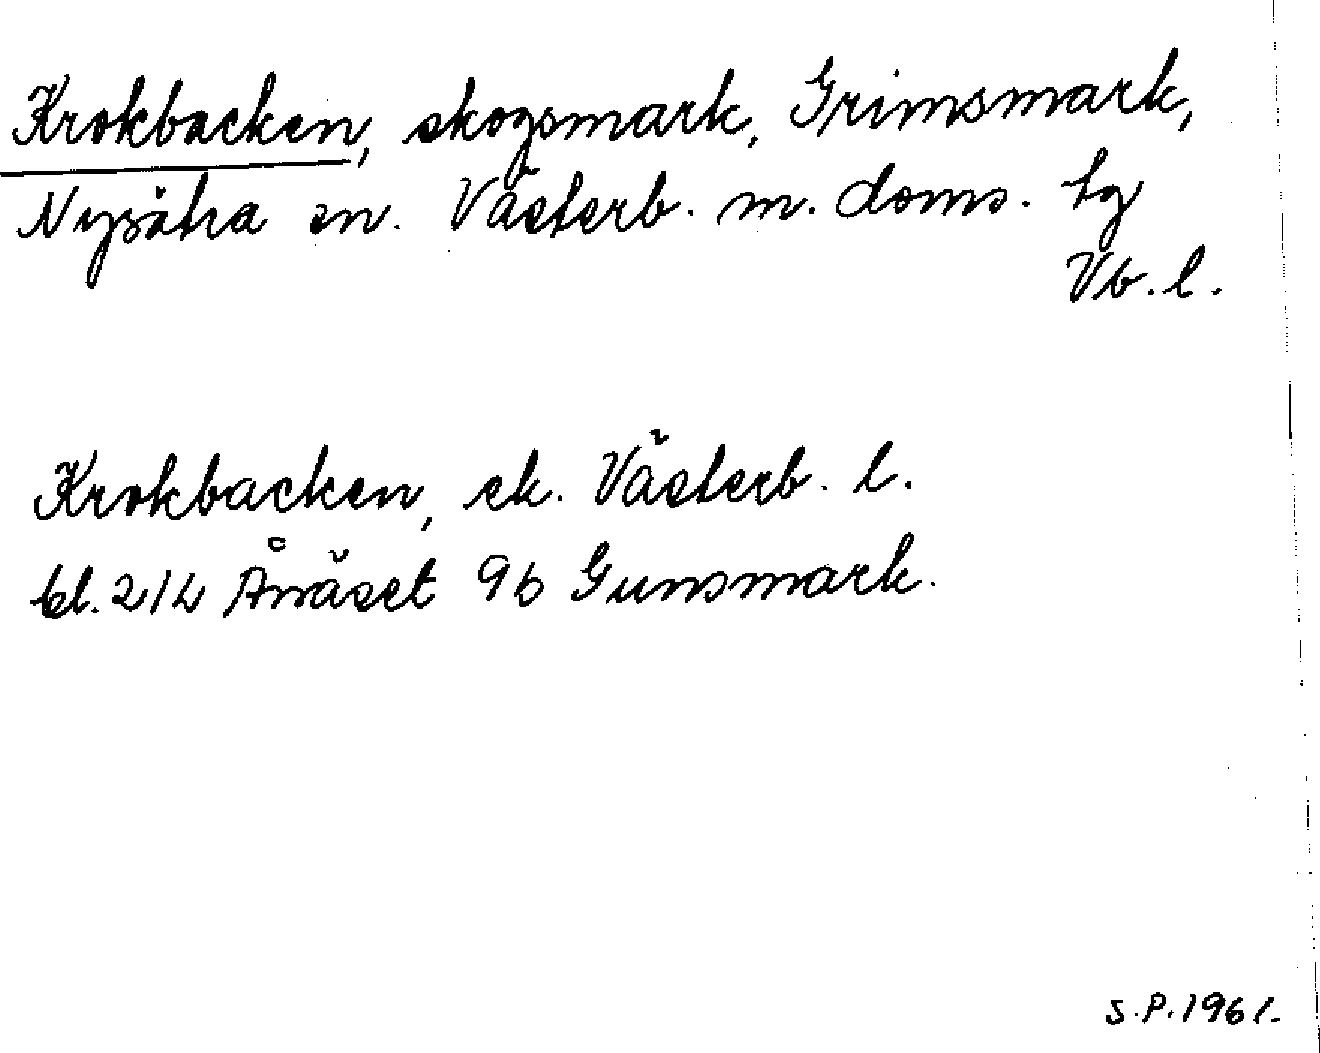 Krokbacken, skogsmark, Grimsmark,
Nysätra sn. Västerb. m. doms. tg
Vb. l.
Krokbacken, ek. Västerb. l.
bl. 214 Ånäset 9b Gunsmark.
S.P. 1961.